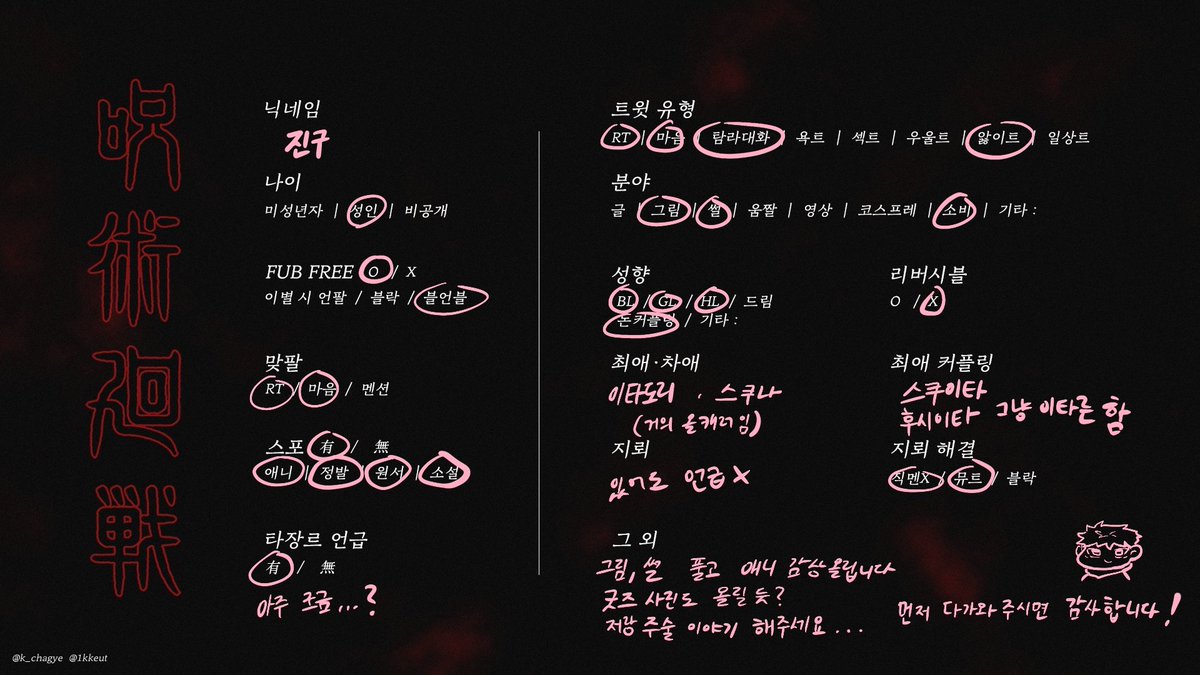 呪術廻戦
닉네임
진구
나이
미성년자 | 성인 | 비공개
FUB FREE O / X
이별 시 언팔 / 블락 / 블언블
맞팔
RT / 마음 / 멘션
스포 有 / 無
애니 | 정발 | 원서 | 소설
타장르 언급
有 / 無
아주 조금...?
트윗 유형
RT | 마음 | 탐라대화 | 욕트 | 섹트 | 우울트 | 앓이트 | 일상트
분야
글 | 그림 | 썰 | 움짤 | 영상 | 코스프레 | 소비 | 기타 :
성향
BL / GL / HL / 드림
논커플링 / 기타 :
리버시블
O / X
최애·차애
이타도리 · 스쿠나
(거의 올캐러임)
최애 커플링
스쿠이타
후시이타 그냥 이타른 함
지뢰
있어도 언급 X
지뢰 해결
직멘X / 뮤트 / 블락
그 외
그림, 썰 풀고 애니 감상 올립니다
굿즈 사진도 올릴 듯?
저랑 주술 이야기 해주세요...
먼저 다가와 주시면 감사합니다!
@k_chagye @1kkeut